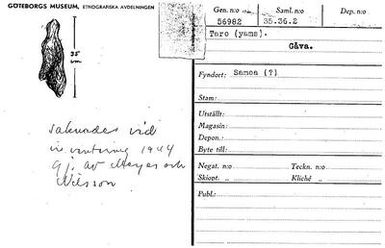 GÖTEBORGS MUSEUM, ETNOGRAFISKA AVDELNINGEN
Gen. n:o Saml. n:o Dep. n:o
56982 35.36.2
Taro (yams).
Gåva.
35
cm
Fyndort: Samoa (?)
Stam:
Utställt:
Magasin:
Depon.:
Byte till:
Negat. n:o Teckn. n:o
Skiopt. „ Kliché „
Publ.:
saknades vid
inventering 1944
gj. av Meyer och
Nilsson